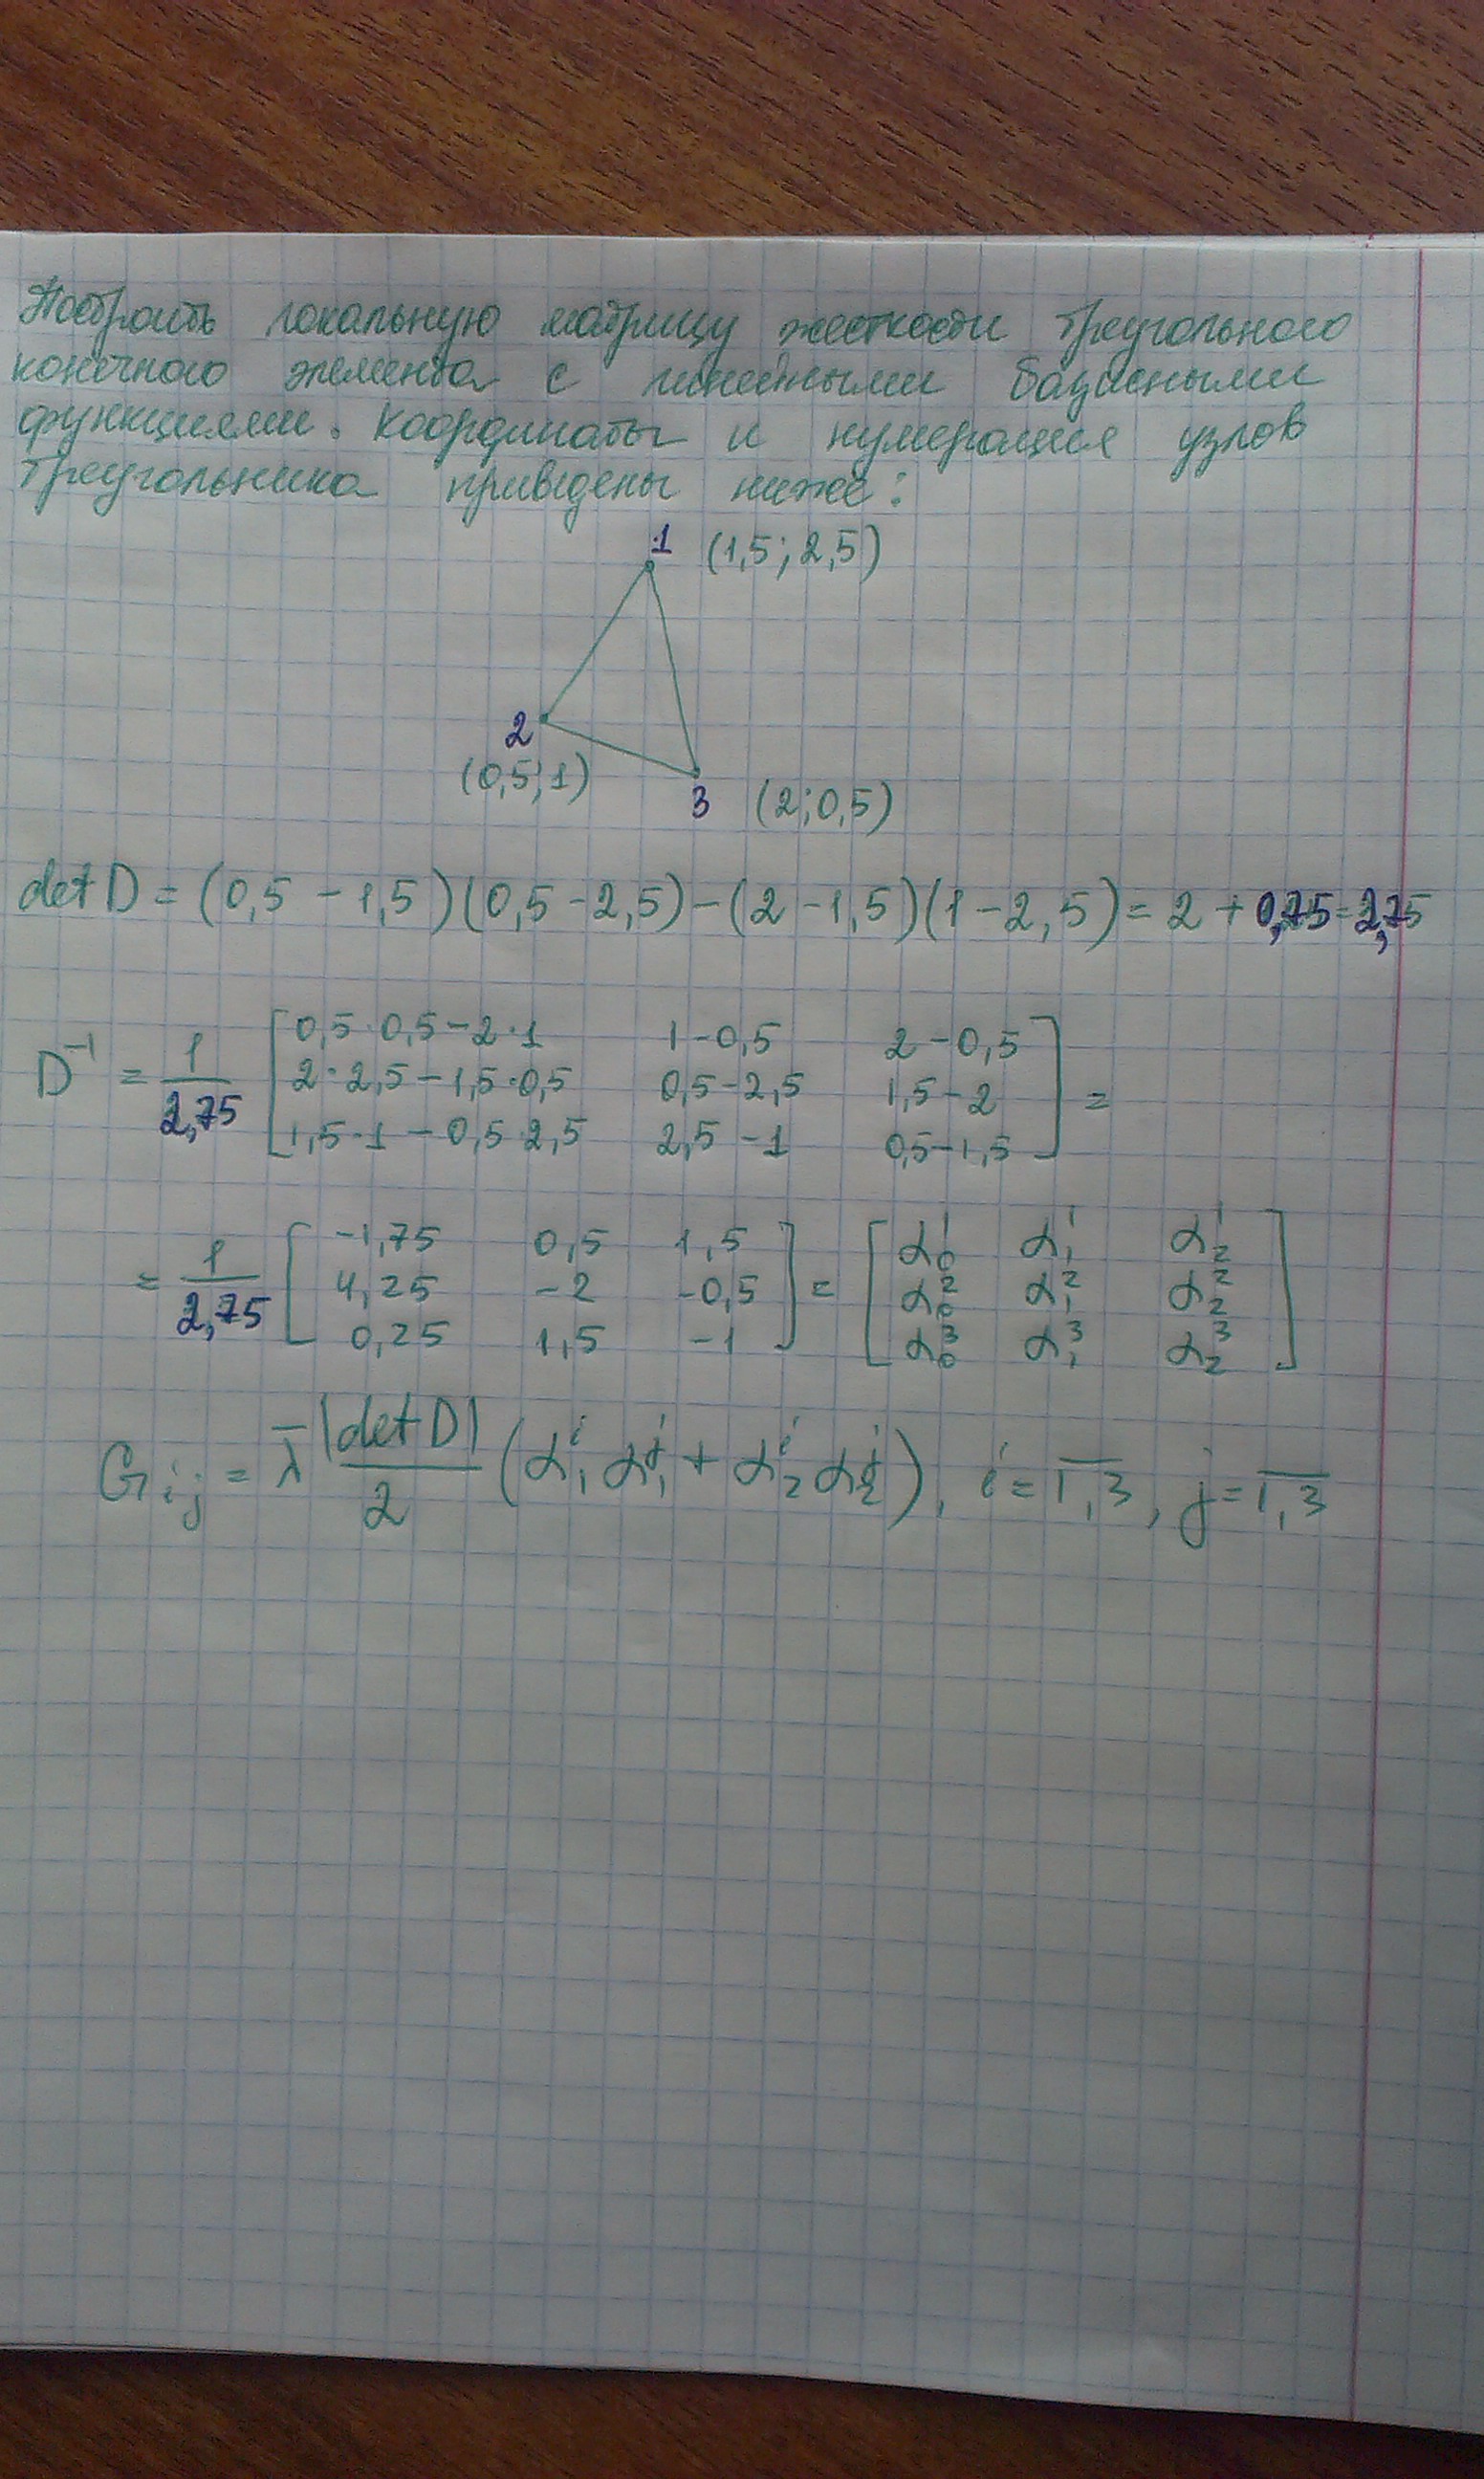 Построить локальную матрицу жесткости треугольного
конечного элемента с линейными базисными
функциями. Координаты и нумерация узлов
треугольника приведены ниже:
1 (1,5; 2,5)
2
(0,5; 1)
3 (2; 0,5)
det D = (0,5 - 1,5)(0,5 - 2,5) - (2 - 1,5)(1 - 2,5) = 2 + 0,75 = 2,75
D⁻¹ = 1/2,75 [0,5·0,5 - 2·1 1 - 0,5 2 - 0,5
2·2,5 - 1,5·0,5 0,5 - 2,5 1,5 - 2
1,5·1 - 0,5·2,5 2,5 - 1 0,5 - 1,5] =
= 1/2,75 [-1,75 0,5 1,5
4,25 -2 -0,5
0,25 1,5 -1] = [α₀¹ α₁¹ α₂¹
α₀² α₁² α₂²
α₀³ α₁³ α₂³]
G_ij = λ̄ |det D|/2 (α₁ⁱ α₁ʲ + α₂ⁱ α₂ʲ), i = 1,3, j = 1,3